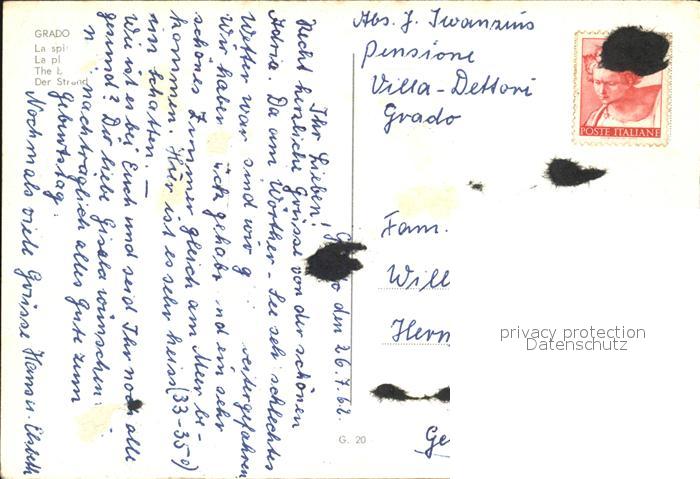 GRADO
La spi
La pl
The b
Der Strand
Grado den 26.7.62.
Ihr Lieben!
Recht herzliche Grüsse von der schönen
Adria. Da am Wörther-See seh schlechtes
Wetter war sind wir g weitergefahren
Wir haben ück gehabt nd ein sehr
schönes Zimmer gleich am Meer be-
kommen. Hier ist es sehr heiss (33-35°)
im Schatten. –
Wie ist es bei Euch und seid Ihr noch alle
gesund? Dir liebe Gisela wünschen
n nachträglich alles Gute zum
Geburtstag.
Nochmals viele Grüsse Hans u. Elsbeth
G. 20
Abs. J. Iwanzius
Pensione
Villa-Dettori
Grado
POSTE ITALIANE
Fam.
Will
Hern
Ge
privacy protection
Datenschutz